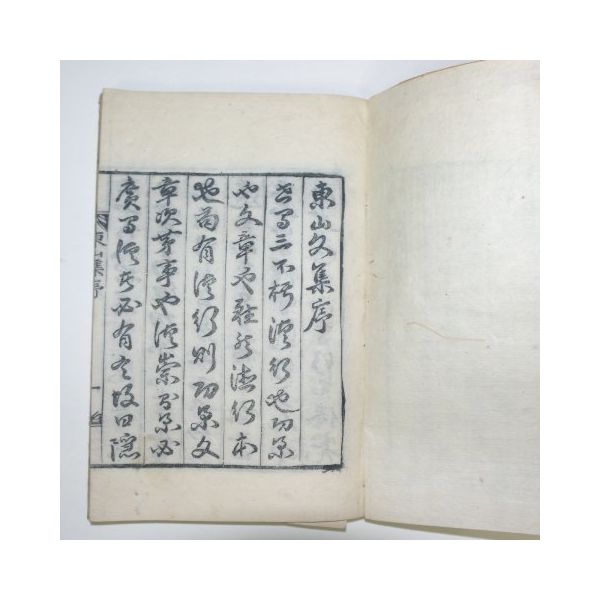 東山文集序
世有三不朽德行也功業
也文章也雖然德行本
也苟有德行則功業文
章次第事也德崇業必
廣有德者必有言故曰隱
東山集序 一